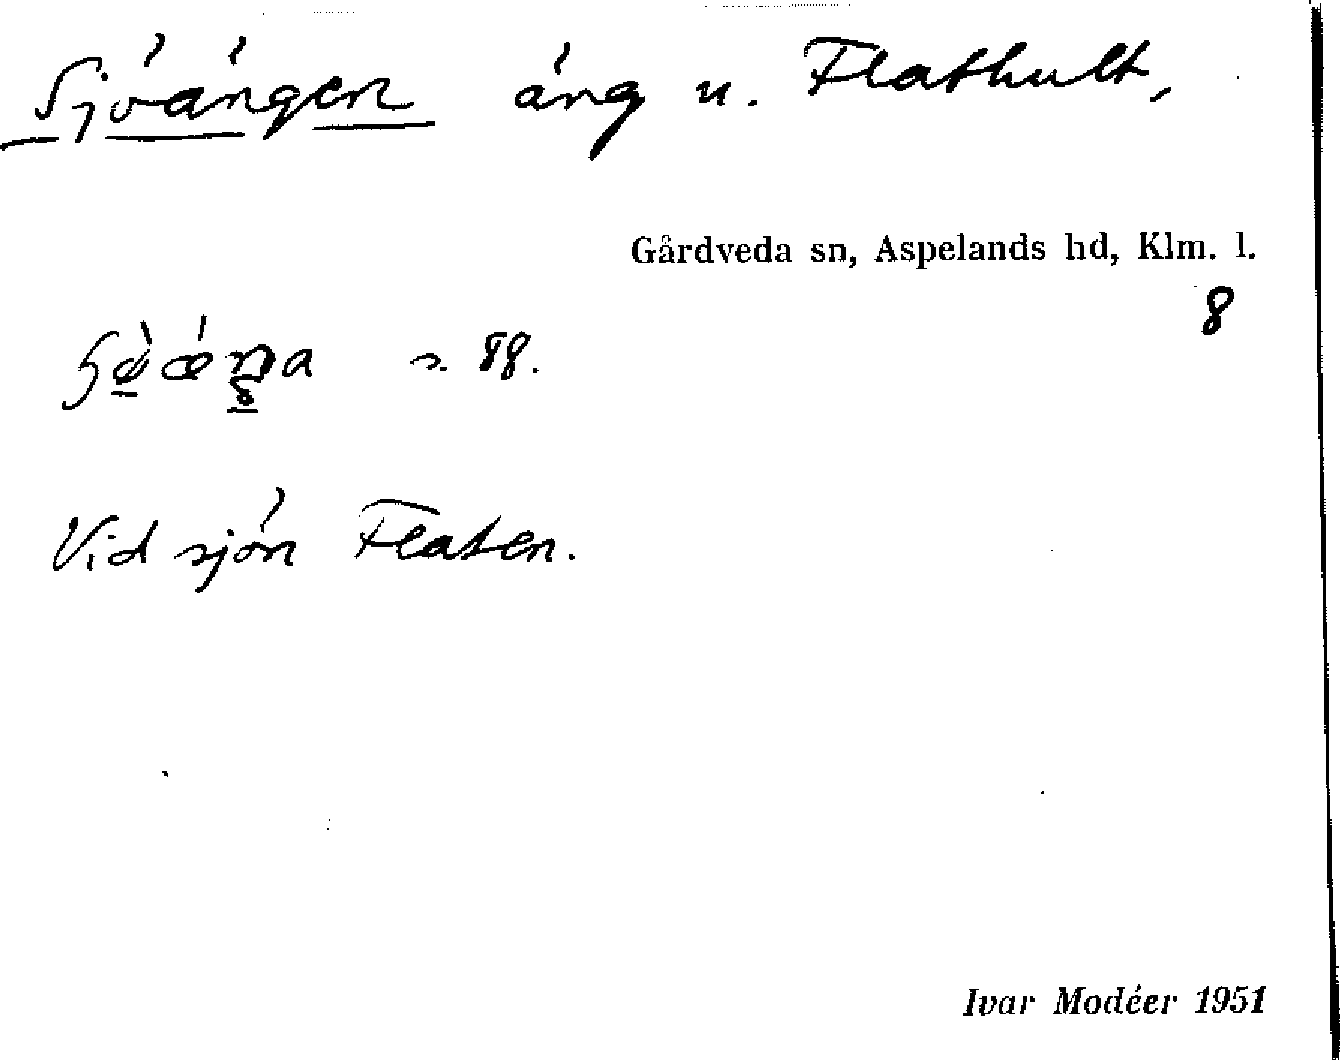 Sjöängen äng u. Flathult,
Gårdveda sn, Aspelands hd, Klm. l.
8
s. 88.
Vid sjön Flaten.
Ivar Modéer 1951